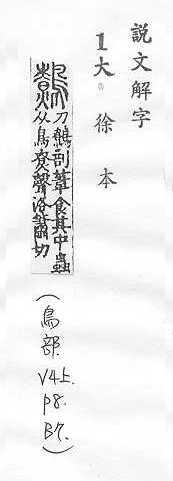 說文解字
1大徐本
鷯刀鷯剖葦食其中蟲
从鳥尞聲洛簫切
(鳥部. V4上. P8. B7.)